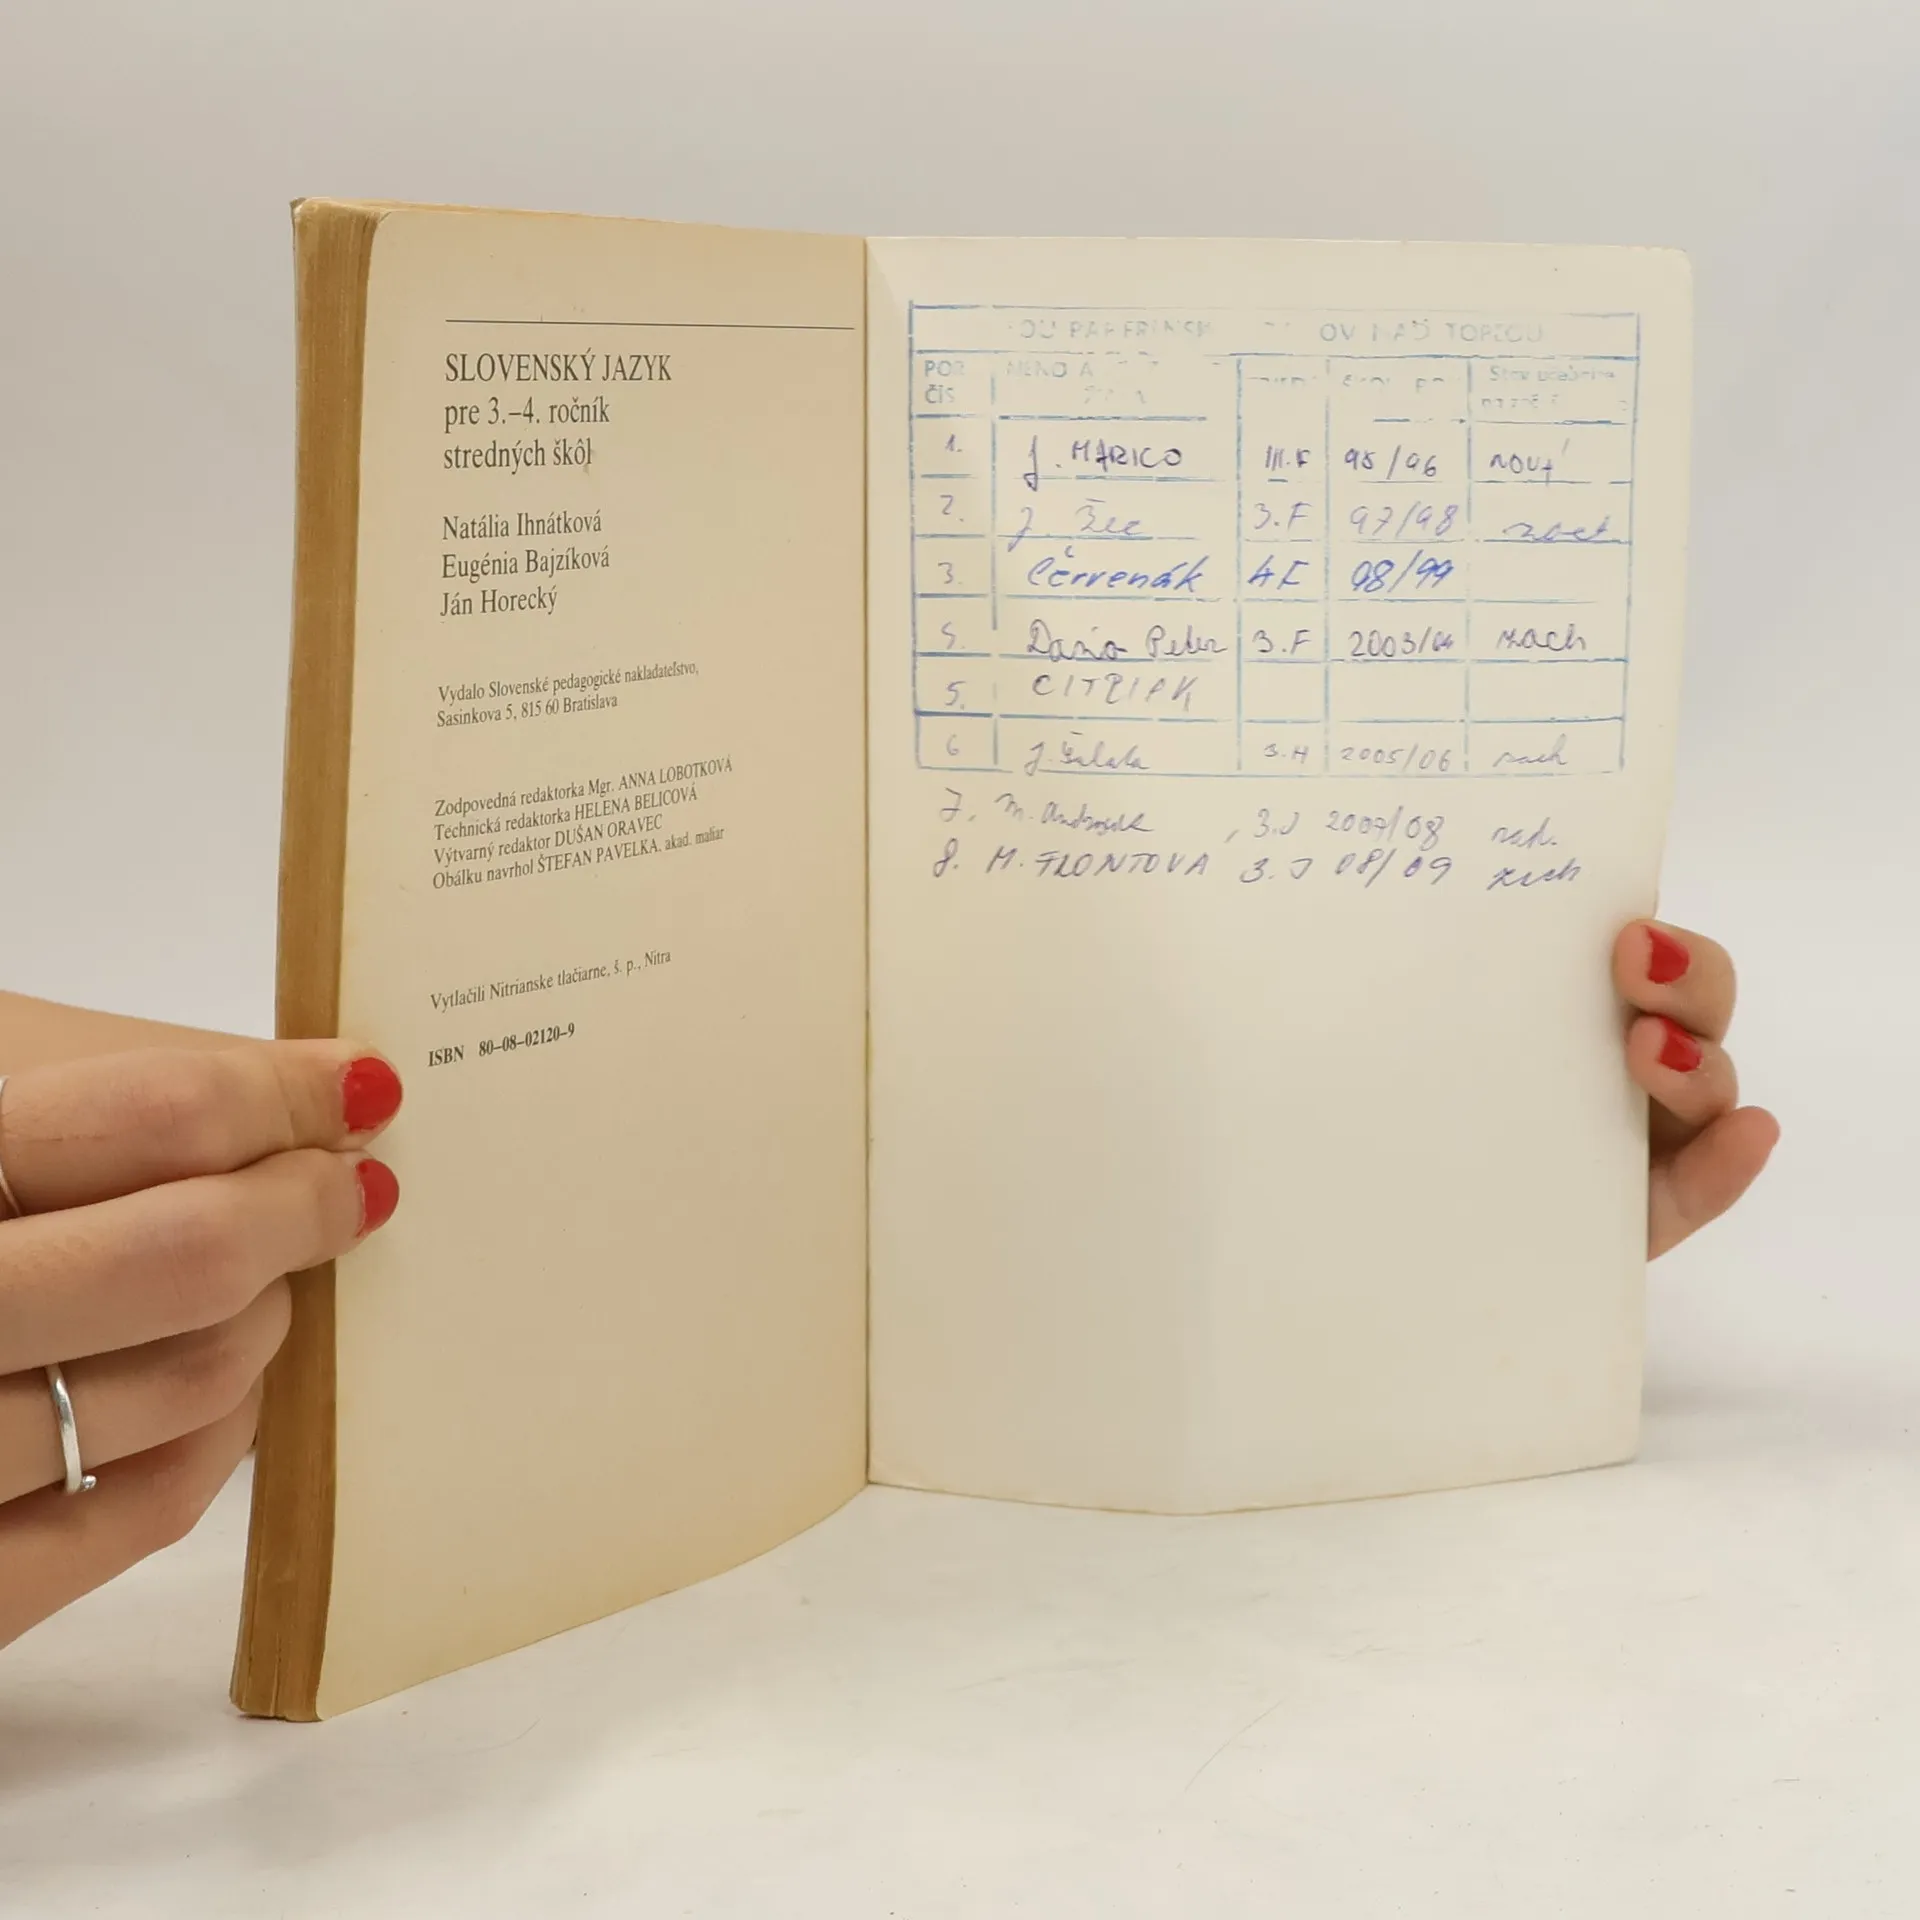 SLOVENSKÝ JAZYK
pre 3.–4. ročník
stredných škôl
Natália Ihnátková
Eugénia Bajzíková
Ján Horecký
Vydalo Slovenské pedagogické nakladateľstvo,
Sasinkova 5, 815 60 Bratislava
Zodpovedná redaktorka Mgr. ANNA LOBOTKOVÁ
Technická redaktorka HELENA BELICOVÁ
Výtvarný redaktor DUŠAN ORAVEC
Obálku navrhol ŠTEFAN PAVELKA, akad. maliar
Vytlačili Nitrianske tlačiarne, š. p., Nitra
ISBN 80–08–02120–9
OV NAD TOPĽOU
POR. MENO A
ČÍS.
1. J. MARICO III.F 95/96 nový
2. J. 3.F 97/98
3. Červenák 4F 98/99
Peter 3.F 2003/04 zach
5.
6 J. 3.H 2005/06 zach
7. M. 3.J 2007/08
8. M. 3.J 08/09 zach